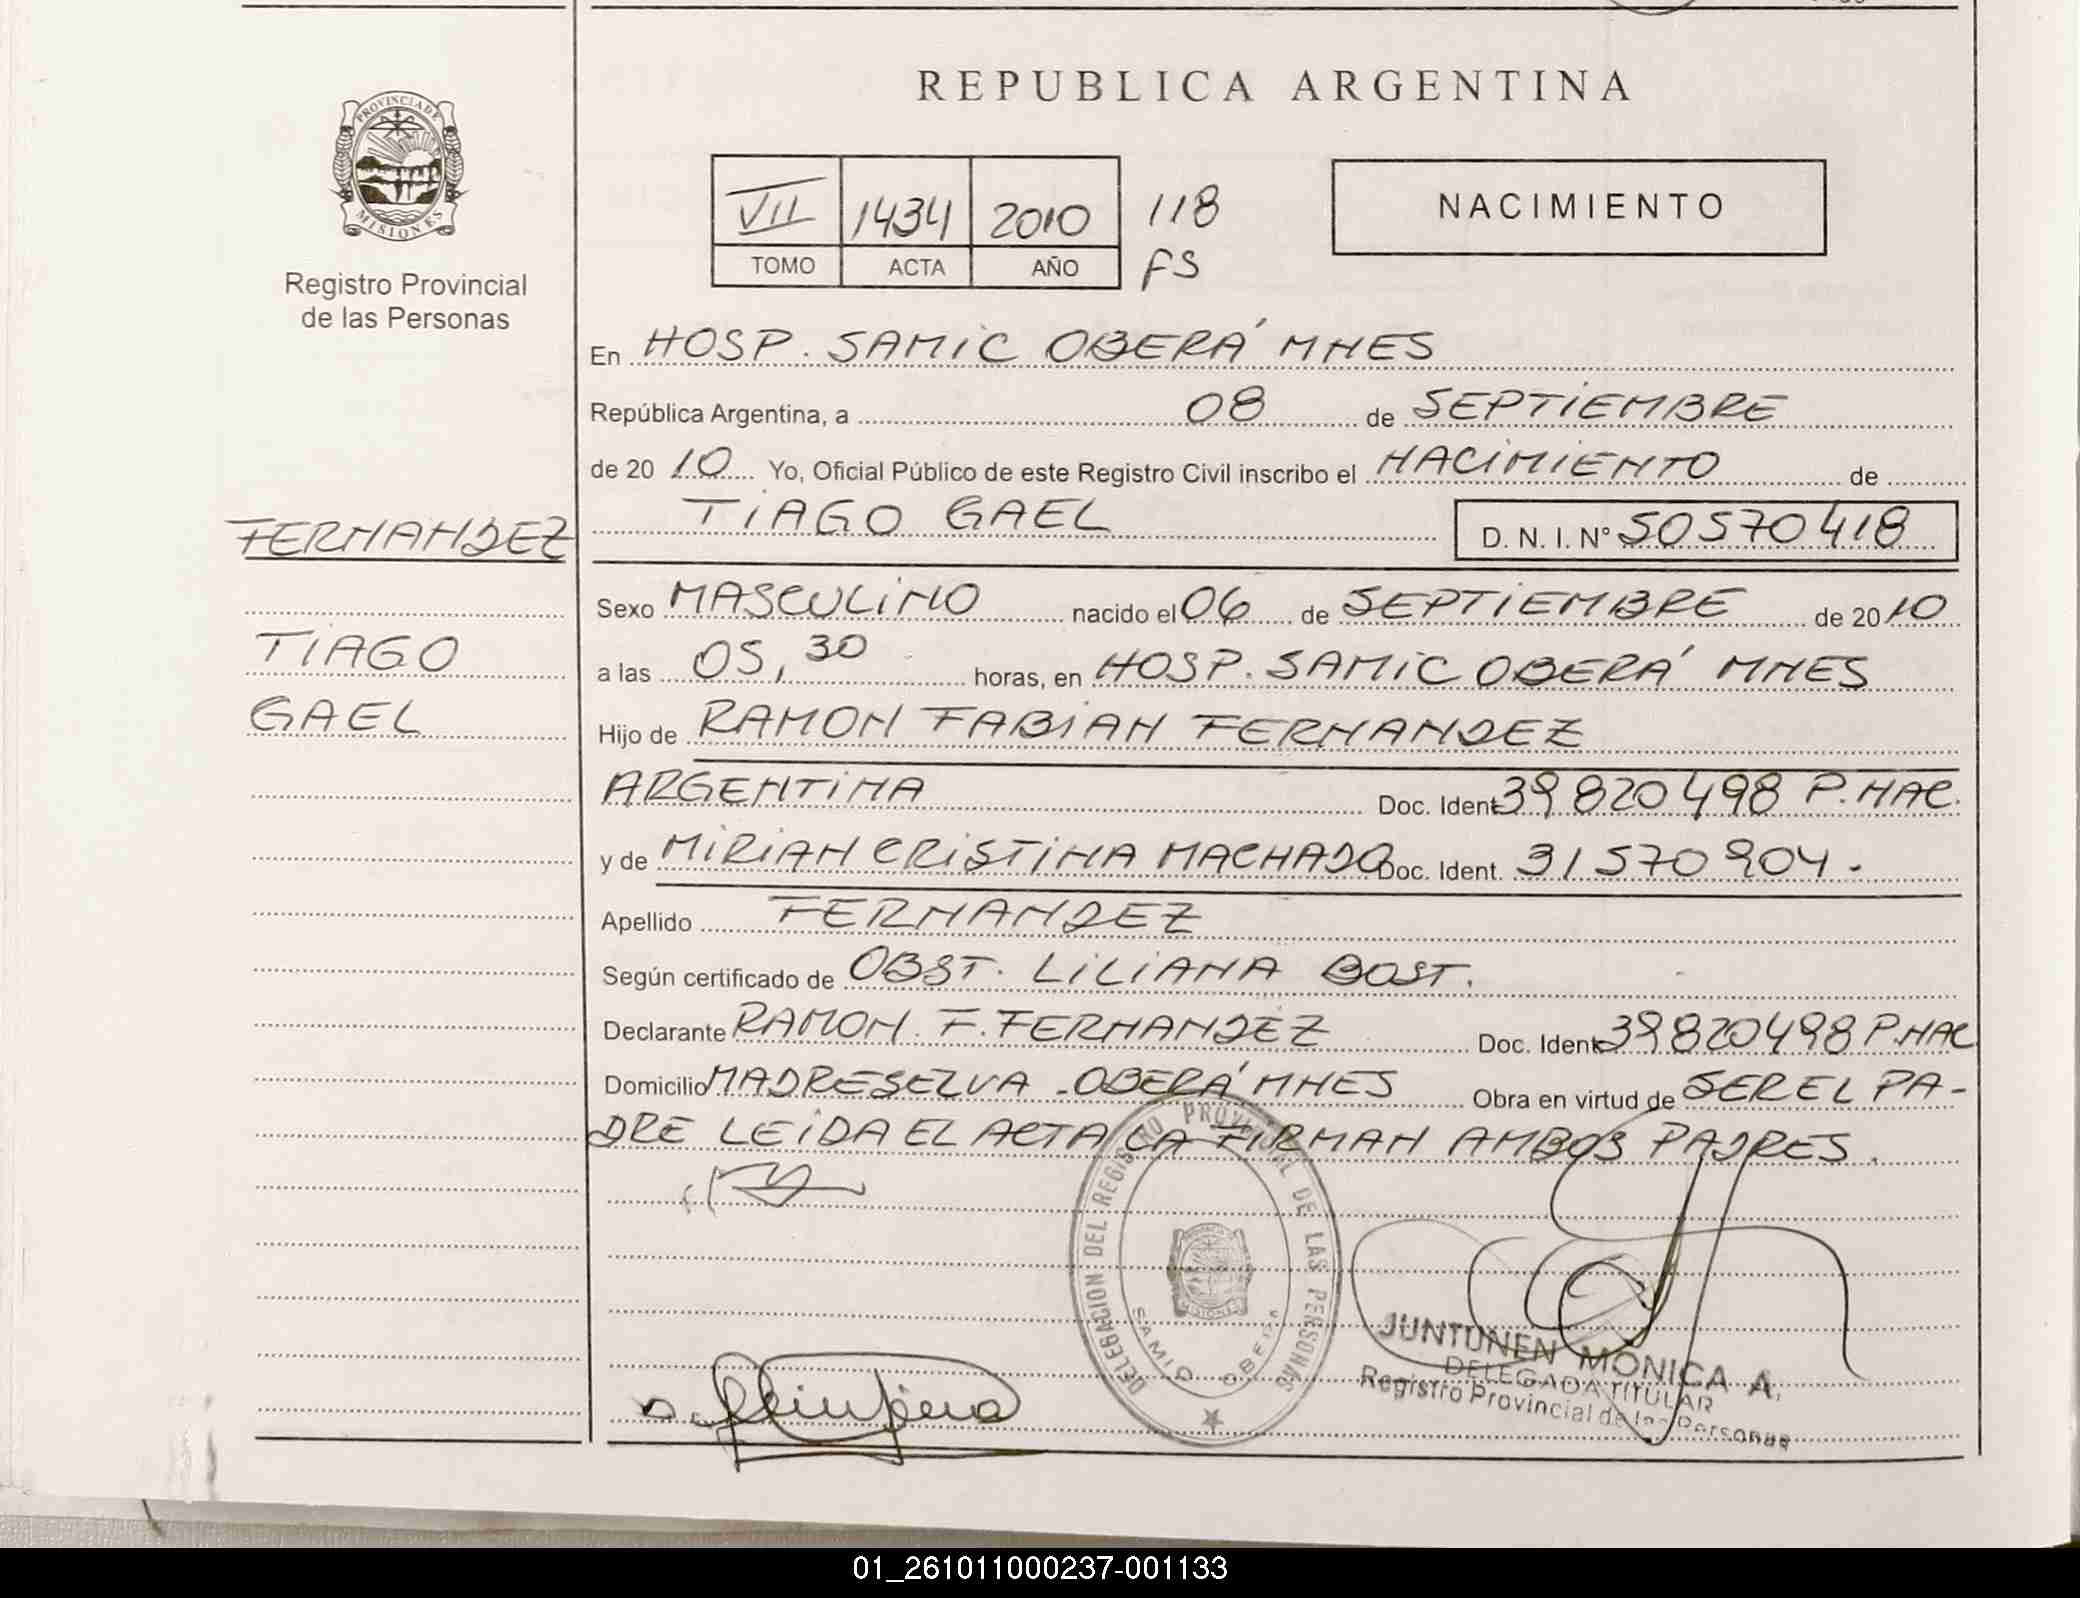 REPUBLICA ARGENTINA
PROVINCIA DE
MISIONES
Registro Provincial
de las Personas
VII 1434 2010 118
TOMO ACTA AÑO FS
NACIMIENTO
En HOSP. SAMIC OBERÁ MNES
República Argentina, a 08 de SEPTIEMBRE
de 20 10 Yo, Oficial Público de este Registro Civil inscribo el NACIMIENTO de
TIAGO GAEL D. N. I. Nº 50570418
FERNANDEZ
TIAGO
GAEL
Sexo MASCULINO nacido el 06 de SEPTIEMBRE de 20 10
a las 05,30 horas, en HOSP. SAMIC OBERÁ MNES
Hijo de RAMON FABIAN FERNANDEZ
ARGENTINA Doc. Ident. 39820498 P.NAC.
y de MIRIAN CRISTINA MACHADO Doc. Ident. 31570904.
Apellido FERNANDEZ
Según certificado de OBST. LILIANA BOST.
Declarante RAMON. F. FERNANDEZ Doc. Ident. 39820498 P.NAC
Domicilio MADRESELVA - OBERÁ MNES Obra en virtud de SER EL PA-
DRE LEIDA EL ACTA LA FIRMAN AMBOS PADRES.
DELEGACION DEL REGISTRO PROVINCIAL DE LAS PERSONAS
MISIONES
SAMIC OBERA
JUNTUNEN MONICA A.
DELEGADA TITULAR
Registro Provincial de las Personas
01_261011000237-001133